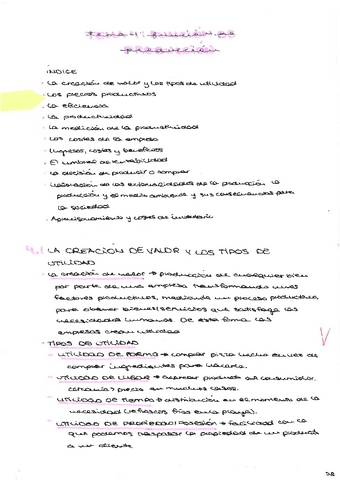 Tema 4: función de
producción
ÍNDICE
· La creación de valor y los tipos de utilidad
· Los procesos productivos
· La eficiencia
· La productividad
· La medición de la productividad
· Los costes de la empresa
· Ingresos, costes y beneficios
· El umbral de rentabilidad
· La decisión de producir o comprar
· Valoración de las externalidades de la producción. La
producción y el medio ambiente y sus consecuencias para
la sociedad
· Aprovisionamiento y costes de inventario
4.1 LA CREACIÓN DE VALOR Y LOS TIPOS DE
UTILIDAD
· La creación de valor → producción de cualquier bien
por parte de una empresa transformando unos
factores productivos, mediante un proceso productivo,
para obtener bienes/servicios que satisfaga las
necesidades humanas. De esta forma las
empresas crean utilidad
· TIPOS DE UTILIDAD
- UTILIDAD DE FORMA → comprar pizza hecha en vez de
comprar ingredientes para hacerla.
- UTILIDAD DE LUGAR → acercar producto al consumidor.
cercanía > precio en muchos casos.
- UTILIDAD DE TIEMPO → distribución en el momento de la
necesidad (refrescos fríos en la playa).
- UTILIDAD DE PROPIEDAD/POSESIÓN → facilidad con la
que podemos traspasar la propiedad de un producto
a un cliente